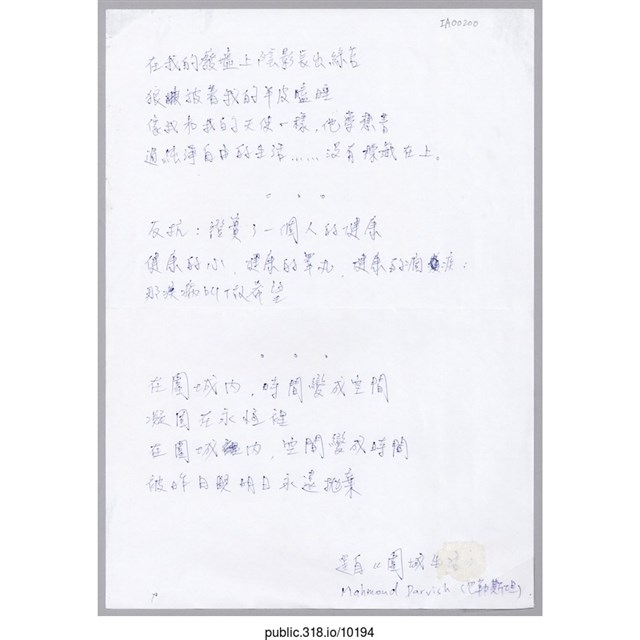 IA00200
在我的廢墟上陰影長出綠色
狼披著我的羊皮瞌睡
像我和我的天使一樣,他夢想著
過純淨自由的生活……沒有 在上。
。 。 。
反抗:證實了一個人的健康
健康的心,健康的睪丸,健康的 疾:
那疾病叫做希望
。 。 。
在圍城內,時間變成空間
凝固在永恆裡
在圍城內,空間變成時間
被昨日與明日永遠拋棄
選自《圍城
Mahmoud Darwish (巴勒斯坦)
public.318.io/10194